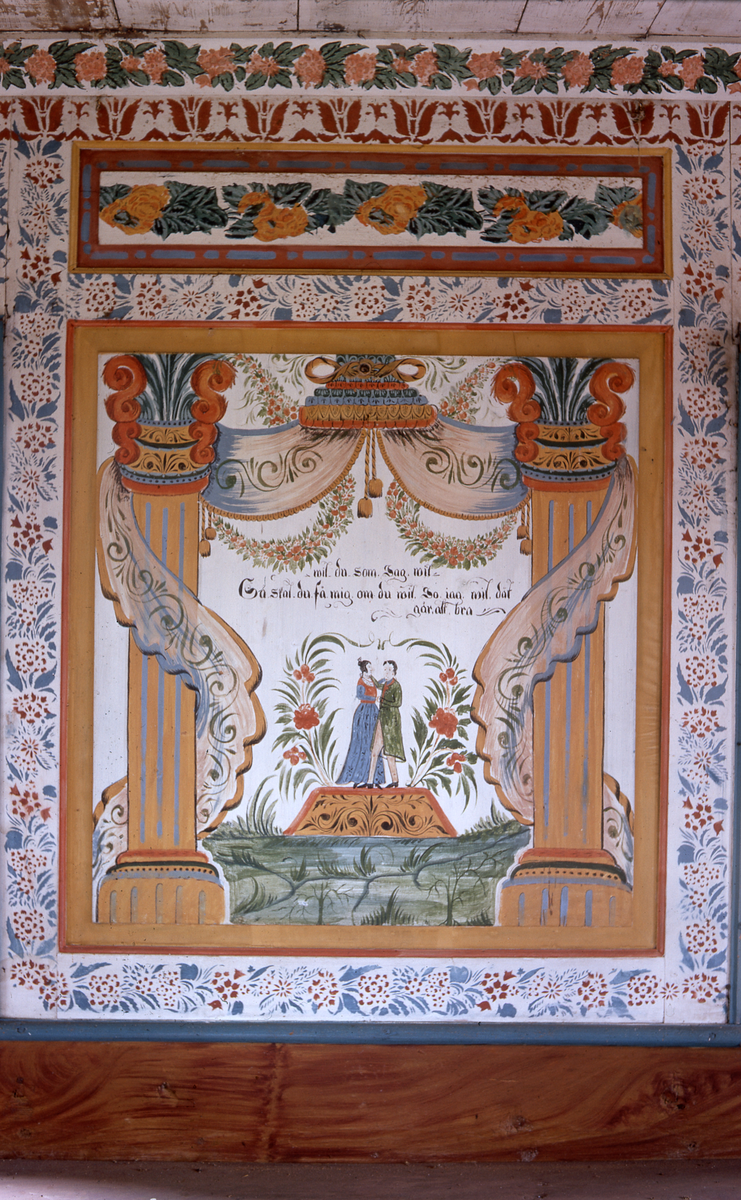 wil du som Jag wil
Så skal du få mig, om du wil So iag wil. dät
gör alt bra